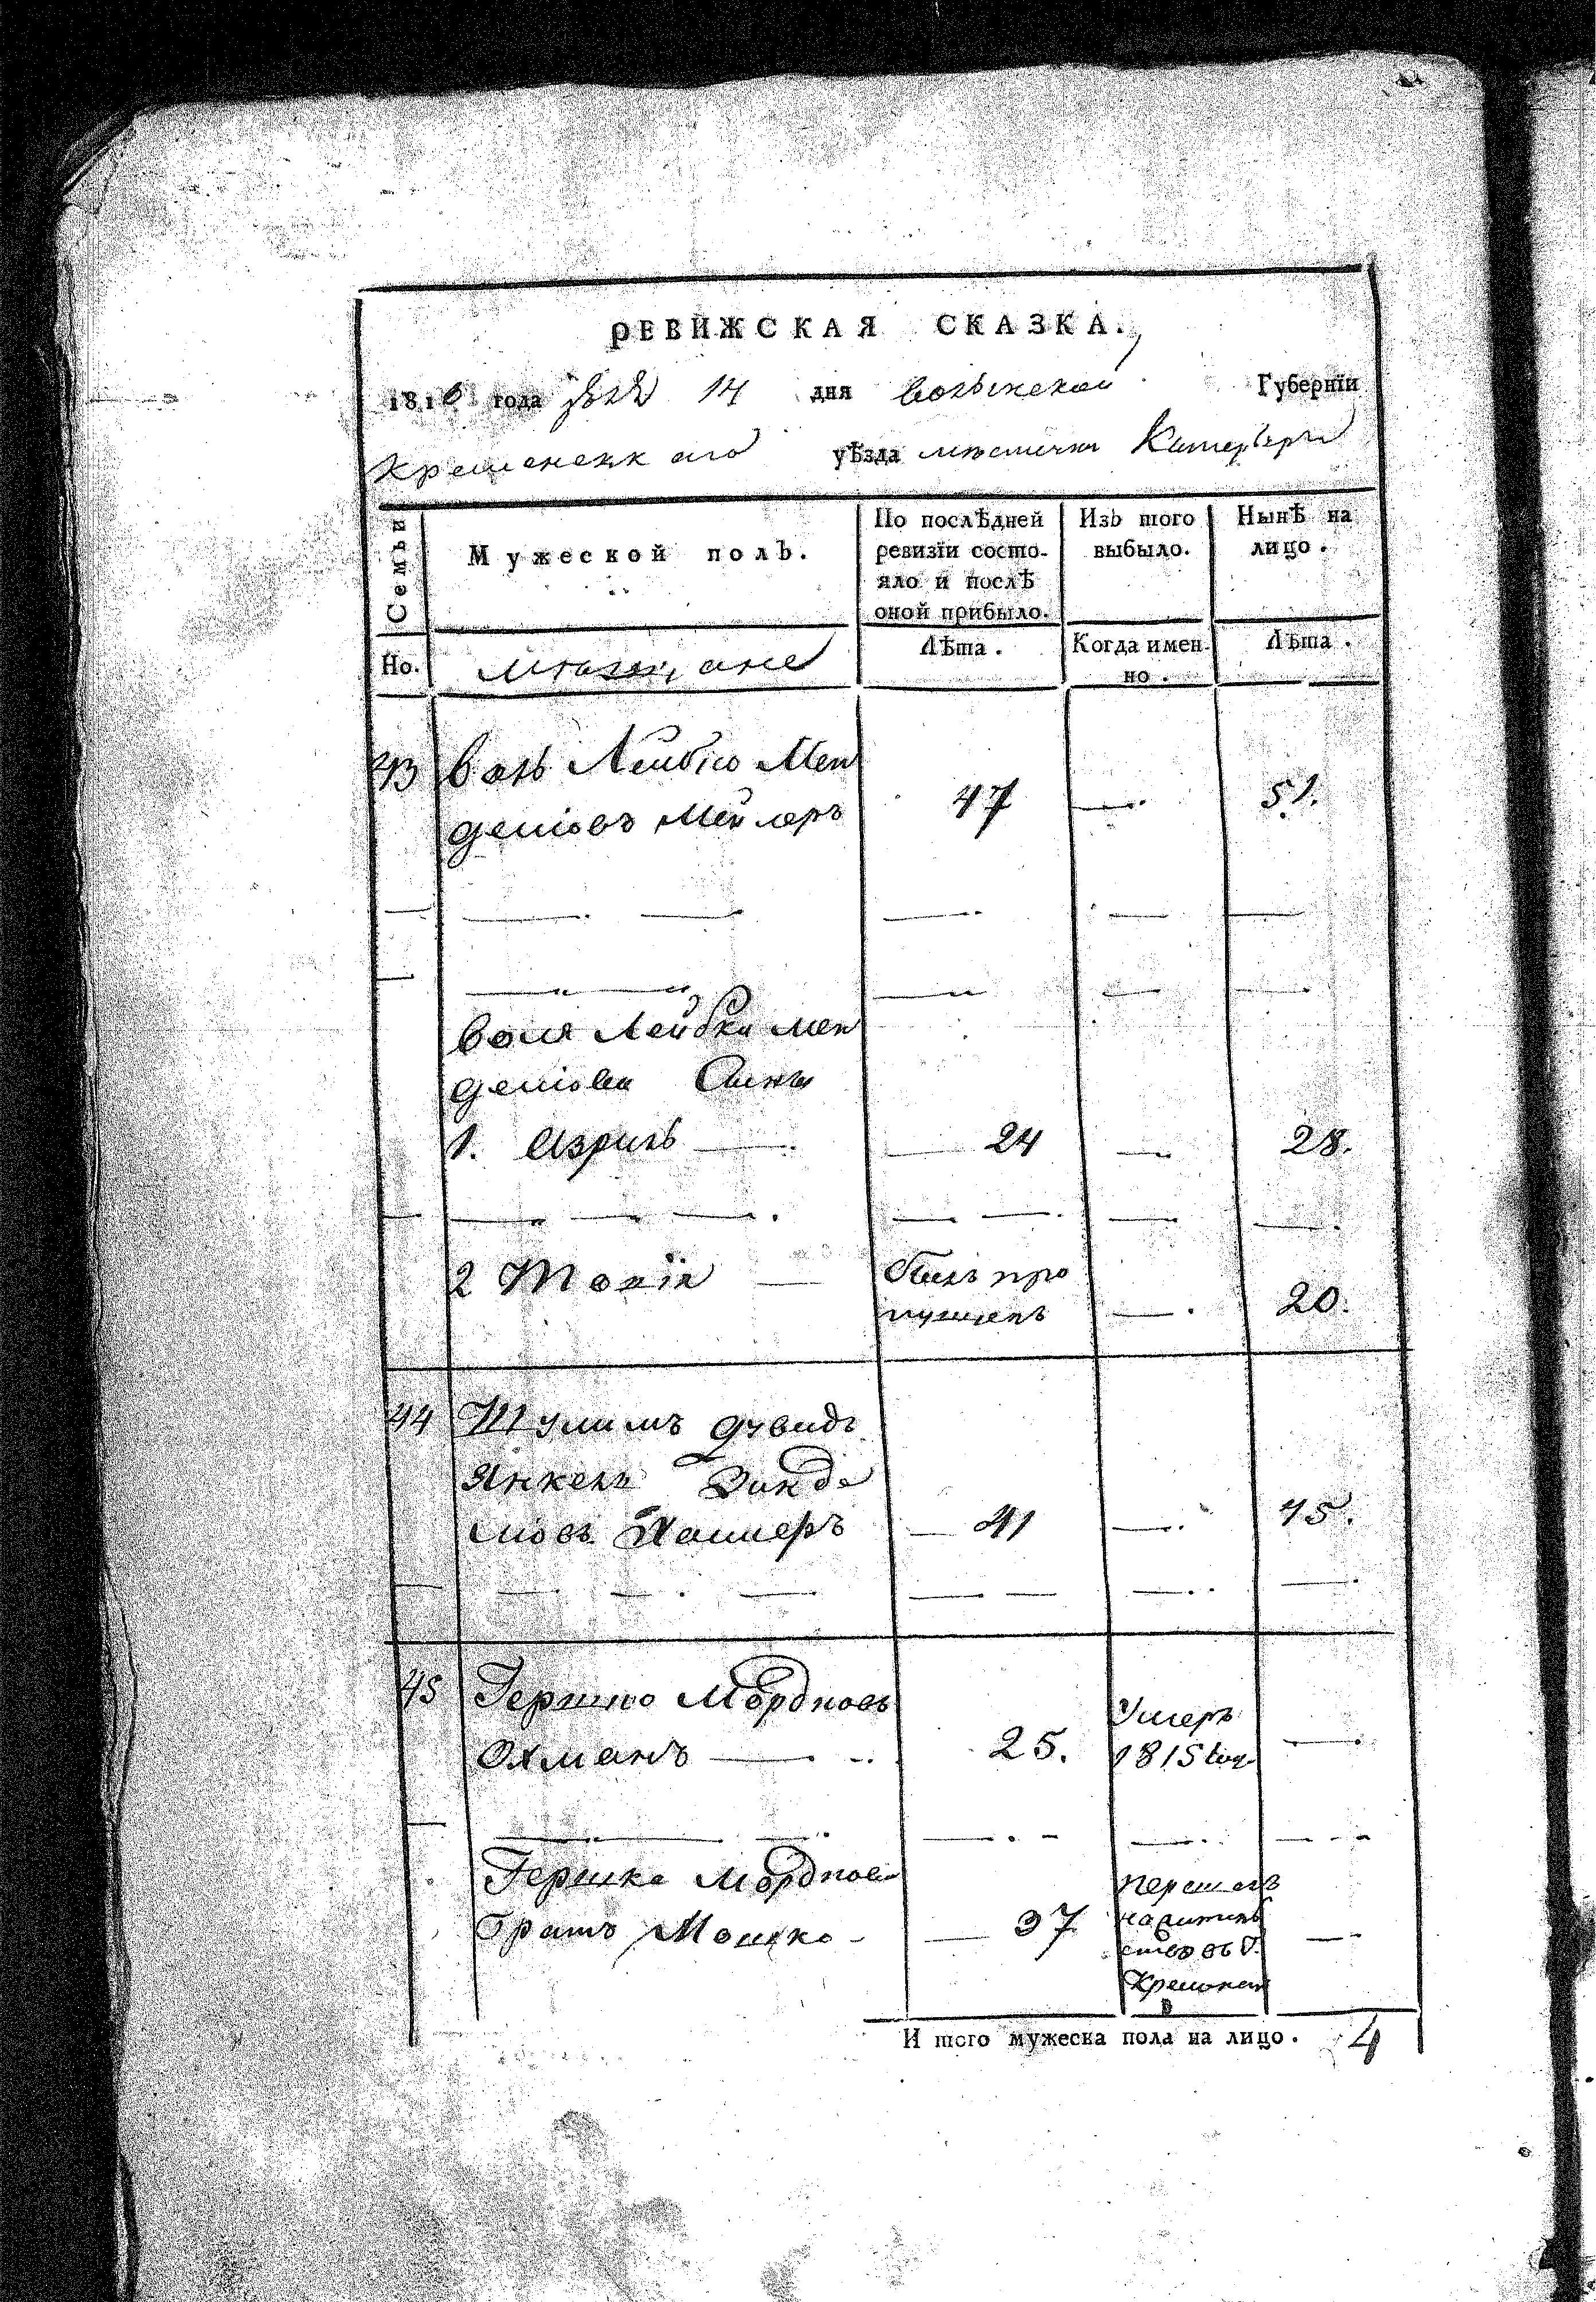 РЕВИЖСКАЯ СКАЗКА.
1816 года 14 дня Волынской Губернїи
Кременецкаго уѣзда мѣстечка Катербурга
Семьи
Мужеской полъ.
По послѣдней ревизїи состояло и послѣ оной прибыло.
Изъ того выбыло.
Нынѣ на лицо.
Но.
мѣщане
Лѣта.
Когда именно.
Лѣта.
43 Волъ Лейбко Мен 47 —. 51.
делiовъ Мейлеръ
Воля Лейбки Мен
делiова Сины
1. Азриль — 24 — 28.
2 — былъ про —. 20.
пущенъ
44 Шулимъ Дувидъ
Янкель
Хашлеръ — 41 —. 45.
45 Гершко Мордковъ Умеръ
Охманъ — 25. 1815 год —
Гершка Мордкова перешелъ
братъ Мошко — 37 нажитель —
ство въ Г.
Кременец
И того мужеска пола на лицо. 4